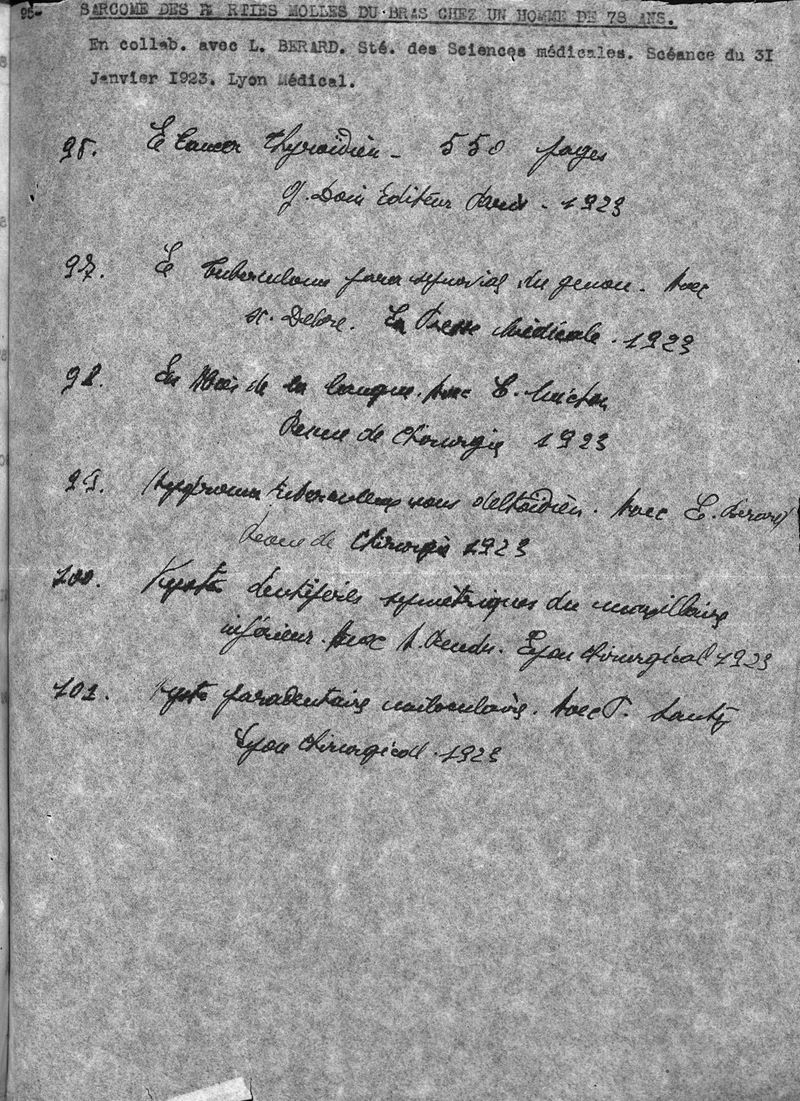 95- SARCOME DES PARTIES MOLLES DU BRAS CHEZ UN HOMME DE 78 ANS.
En collab. avec L. BERARD. Sté. des Sciences médicales. Scéance du 3I
Janvier I923. Lyon Médical.
Cancer thyroïdien - 550 pages
G. Doin Editeur Paris - 1923
97. tuberculome para synovial du genou. Avec
X. Delore. La Presse Médicale. 1923
98. de la langue. Avec
Revue de Chirurgie 1923
99. Hygroma tuberculeux sous deltoïdien. Avec L. Berard
Revue de Chirurgie 1923
100. Kystes dentifères symétriques du maxillaire
inférieur. Avec A. Rendu. Lyon Chirurgical 1923
101. Kyste paradentaire uniloculaire. Avec P. Santy
Lyon Chirurgical. 1923